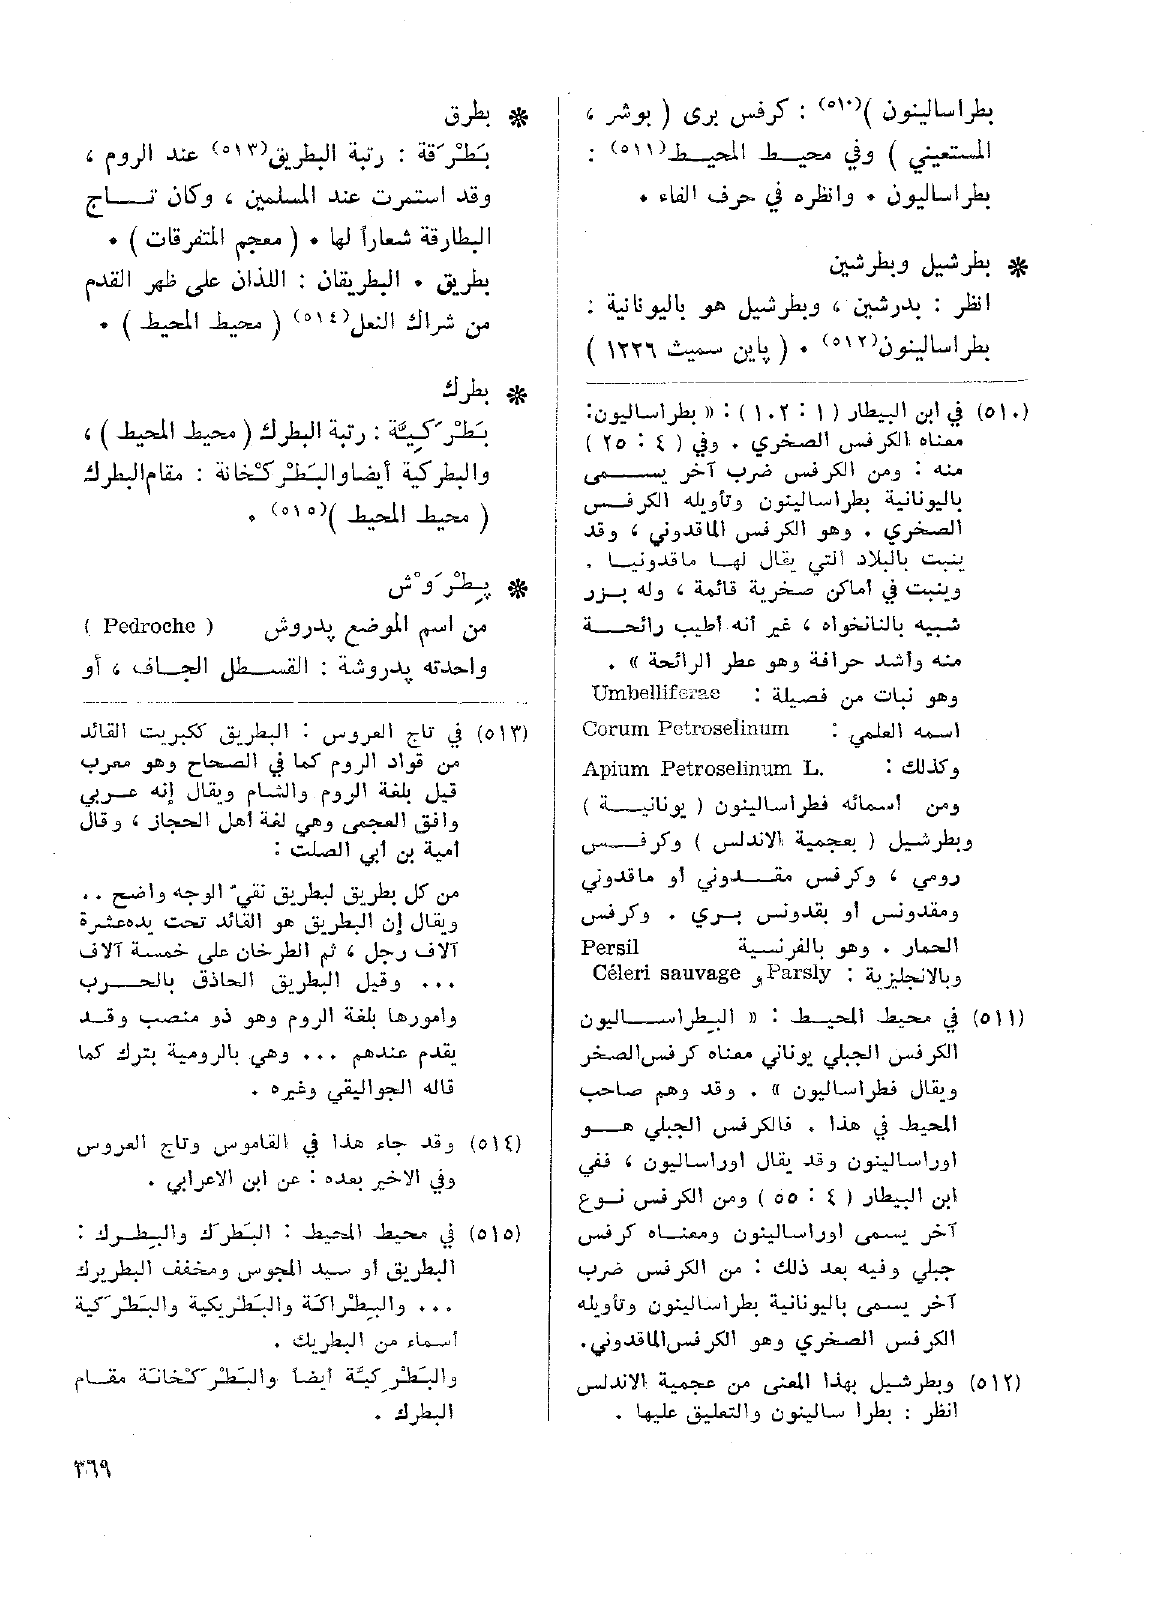 بطراسالينون )(٥١٠) : كرفس برى ( بوشر ،
المستعيني ) وفي محيط المحيط(٥١١) :
بطراساليون • وانظره في حرف الفاء •
* بطرشيل وبطرشين
انظر : بدرشين ، وبطرشيل هو باليونانية :
بطراسالينون(٥١٢) • ( پاين سميث ١٢٢٦ )
(٥١٠) في ابن البيطار ( ١ : ١٠٢ ) : « بطراساليون:
معناه الكرفس الصخري . وفي ( ٤ : ٢٥ )
منه : ومن الكرفس ضرب آخر يسمى
باليونانية بطراسالينون وتأويله الكرفس
الصخري . وهو الكرفس الماقدوني ، وقد
ينبت بالبلاد التي يقال لها ماقدونيا .
وينبت في أماكن صخرية قائمة ، وله بزر
شبيه بالنانخواه ، غير أنه أطيب رائحة
منه وأشد حرافة وهو عطر الرائحة » .
وهو نبات من فصيلة : Umbelliferae
اسمه العلمي : Corum Petroselinum
وكذلك : Apium Petroselinum L.
ومن أسمائه فطراسالينون ( يونانية )
وبطرشيل ( بعجمية الاندلس ) وكرفس
رومي ، وكرفس مقدوني أو ماقدوني
ومقدونس أو بقدونس بري . وكرفس
الحمار . وهو بالفرنسية Persil
وبالانجليزية : Parsly و Céleri sauvage
(٥١١) في محيط المحيط : « البطراساليون
الكرفس الجبلي يوناني معناه كرفس الصخر
ويقال فطراساليون » . وقد وهم صاحب
المحيط في هذا . فالكرفس الجبلي هو
اوراسالينون وقد يقال اوراساليون ، ففي
ابن البيطار ( ٤ : ٥٥ ) ومن الكرفس نوع
آخر يسمى اوراسالينون ومعناه كرفس
جبلي وفيه بعد ذلك : من الكرفس ضرب
آخر يسمى باليونانية بطراسالينون وتأويله
الكرفس الصخري وهو الكرفس الماقدوني.
(٥١٢) وبطرشيل بهذا المعنى من عجمية الاندلس
انظر : بطرا سالينون والتعليق عليها .
* بطرق
بَطْرَقة : رتبة البطريق(٥١٣) عند الروم ،
وقد استمرت عند المسلمين ، وكان تاج
البطارقة شعاراً لها • ( معجم المتفرقات ) •
بطريق • البطريقان : اللذان على ظهر القدم
من شراك النعل(٥١٤) ( محيط المحيط ) •
* بطرك
بَطْرَكِيَّة : رتبة البطرك ( محيط المحيط ) ،
والبطركية أيضا والبَطْرَكْخانة : مقام البطرك
( محيط المحيط )(٥١٥) •
* پِطْرَوْش
من اسم الموضع پدروش ( Pedroche )
واحدته پدروشة : القسطل الجاف ، أو
(٥١٣) في تاج العروس : البطريق ككبريت القائد
من قواد الروم كما في الصحاح وهو معرب
قيل بلغة الروم والشام ويقال إنه عربي
وافق العجمى وهي لغة أهل الحجاز ، وقال
أمية بن أبي الصلت :
من كل بطريق لبطريق نقيّ الوجه واضح ..
ويقال إن البطريق هو القائد تحت يده عشرة
آلاف رجل ، ثم الطرخان على خمسة آلاف
... وقيل البطريق الحاذق بالحرب
وامورها بلغة الروم وهو ذو منصب وقد
يقدم عندهم ... وهي بالرومية بترك كما
قاله الجواليقي وغيره .
(٥١٤) وقد جاء هذا في القاموس وتاج العروس
وفي الاخير بعده : عن ابن الاعرابي .
(٥١٥) في محيط المحيط : البَطرَك والبِطرك :
البطريق أو سيد المجوس ومخفف البطريرك
... والبِطْراكة والبَطْريكية والبَطْرَكية
أسماء من البطريك .
والبَطْرِكيَّة أيضاً والبَطْرَكْخانَة مقام
البطرك .
٣٦٩